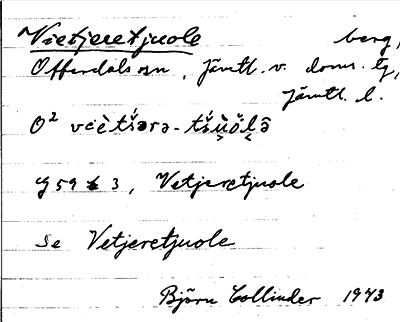 Vietjeretjuole berg,
Offerdals sn, Jämtl. v. doms. tg,
Jämtl. l.
O² 
G 59 3, Vetjeretjuole
Se Vetjeretjuole
Björn Collinder 1943